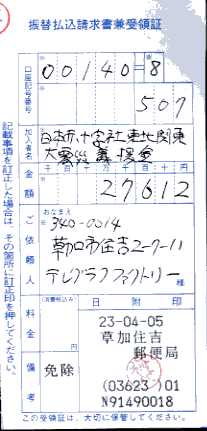 振替払込請求書兼受領証
口座記号番号
00140=8
507
加入者名
日本赤十字社東北関東
大震災義援金
金額
千百十万千百十円
27612
ご依頼人
おなまえ
340-0014
草加市住吉2-7-11
テレグラフファクトリー
様
料金
(消費税込み)
円
日附印
23-04-05
草加住吉
郵便局
備考
免除
(03623)01
N91490018
記載事項を訂正した場合は、その箇所に訂正印を押してください。
この受領証は、大切に保管してください。